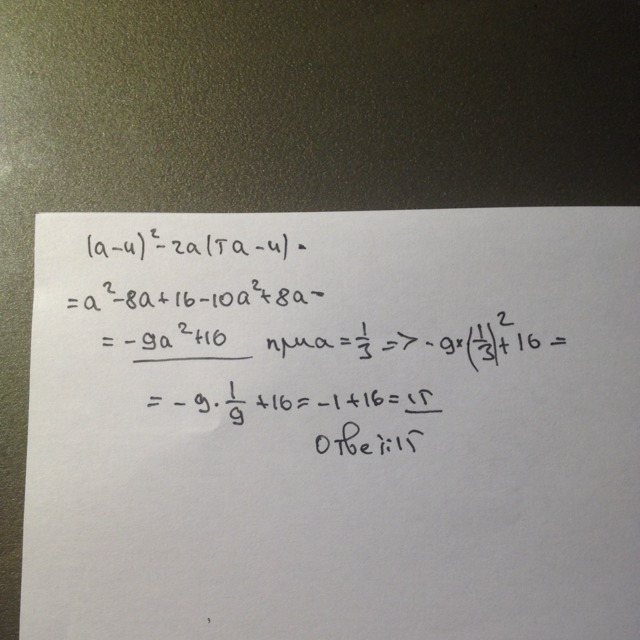 (a-4)²-2a(5a-4)=
=a²-8a+16-10a²+8a=
=-9a²+16 при a=1/3 => -9*(1/3)²+16=
=-9·1/9+16=-1+16=15
Ответ:15